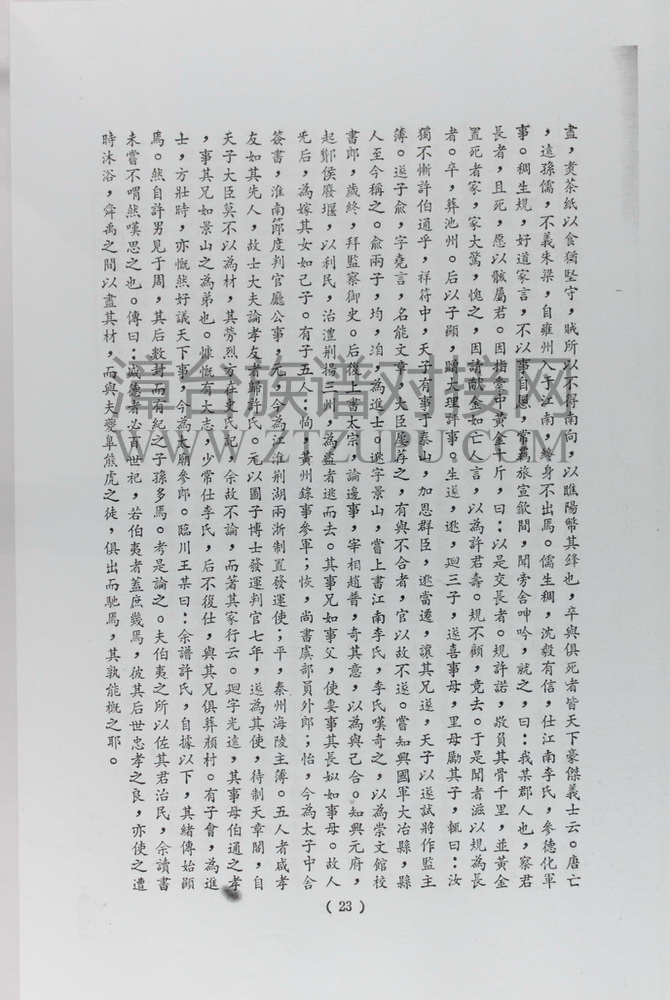 盡，煑茶紙以食猶堅守，賊所以不得南向，以睢陽幣其鋒也，卒與俱死者皆天下豪傑義士云。唐亡
，遠孫儒，不義朱梁，自雍州入于江南，終身不出焉。儒生稠，沈毅有信，仕江南李氏，參德化軍
事。稠生規，好道家言，不以事自恩，常羈旅宣歙間，聞旁舍呻吟，就之，曰：我某郡人也，察君
長者，且死，愿以骸屬君。因指橐中黃金十斤，曰：以是交長者。規許諾，敗負其骨千里，並黃金
置死者家，家大驚，愧之，因請獻金如亡
言，以為許君壽。規不顧，竟去。于是聞者滋以規為長
者。卒，葬池州。后以子顯，贈大理評事。生遂，逖，迥三子，遂喜事母，里母勵其子，輒曰：汝
獨不慚許伯通乎，祥符中，天子有事于泰山，加恩群臣，逖當遷，讓其兄遂，天子以遂試將作監主
簿。遂子俞，字堯言，名能文章，大臣屢荐之，有與不合者，官以故不遂。嘗知興國軍大冶縣，縣
人至今稱之。俞兩子，均，垍
為進士。逖字景山，嘗上書江南李氏，李氏嘆奇之，以為崇文館校
書郎，歲終，拜監察御史。后復上書太宗
論邊事，宰相趙普，奇其意，以為與己合。知興元府，
起鄭侯廢堰，以利民，治澧荆揚三州，為盜者逃而去。其事兄如事父，使妻事其長姒如事母。故人
无后，為嫁其女如己子。有子五人：恂，黃州錄事參軍；恢，尚書虞部員外郎；怡，今為太子中舍
簽書，淮南節度判官廳公事，元，今為江淮荆湖兩浙制置發運使；平，泰州海陵主簿。五人者咸孝
友如其先人，故士大夫論孝友者歸許氏。元以國子博士發運判官七年，遂為其使，待制天章閣，自
天子大臣莫不以為材，其勞烈方在史氏記，余故不論，而著其家行云。迥字光遠，其事母伯通之孝
，事其兄如景山之為弟也。慷慨有大志，少常仕李氏，后不復仕，與其兄俱葬顏村。有子會，為進
士，方壯時，亦慨然好議天下事，今為太廟參郎。臨川王某曰：余譜許氏，自據以下，其緒傳始顯
焉。然自許男見于周，其后數封而有紀之子孫多焉。考是論之。夫伯夷之所以佐其君治民，余讀書
未嘗不喟然嘆思之也。傳曰：盛德者必百世祀，若伯夷者蓋庶幾焉，彼其后世忠孝之良，亦使之遭
時沐浴，舜禹之間以盡其材，而與夫夔皋熊虎之徒，俱出而馳焉，其孰能概之耶。
(23)
漳台族谱对接网
WWW.ZTZUPU.COM